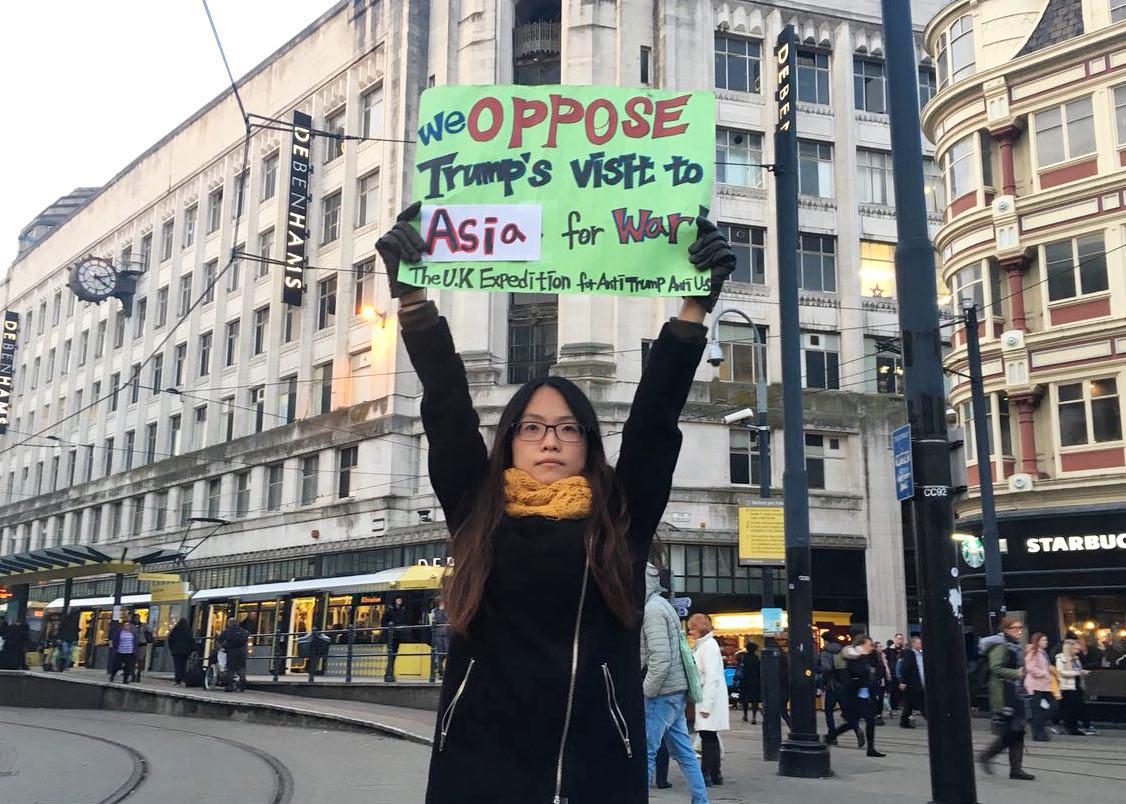 we OPPOSE
Trump's visit to
Asia for War
The U.K Expedition for Anti Trump Anti US
DEBENHAMS
DEBENHAMS
CC92
STARBUC